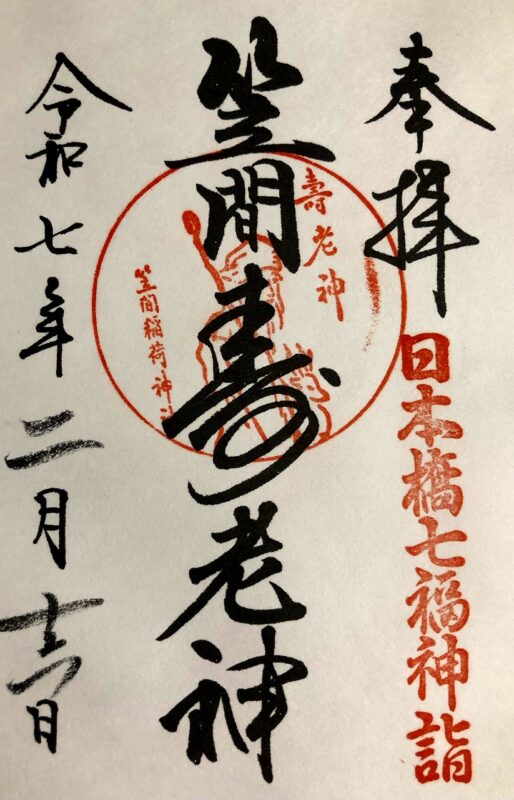 奉拝
日本橋七福神詣
笠間寿老神
壽老神
笠間稲荷神社
令和七年二月十六日